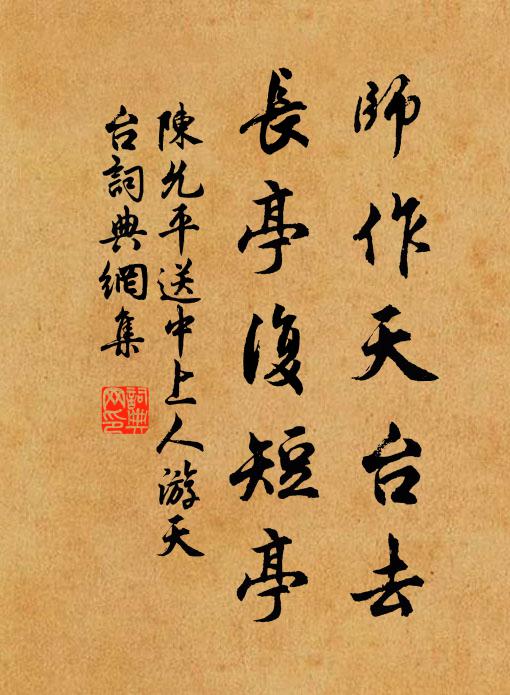 師作天台去
長亭復短亭
陳允平送中上人游天
台詞典網集
詞典
网印